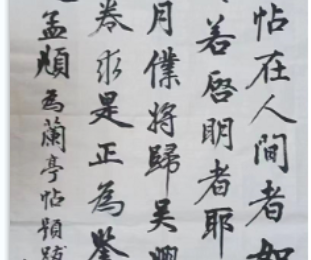 帖在人間者如
若啓明者耶
月僕將歸吴興
卷求是正為鑒
孟頫為蘭亭帖題跋